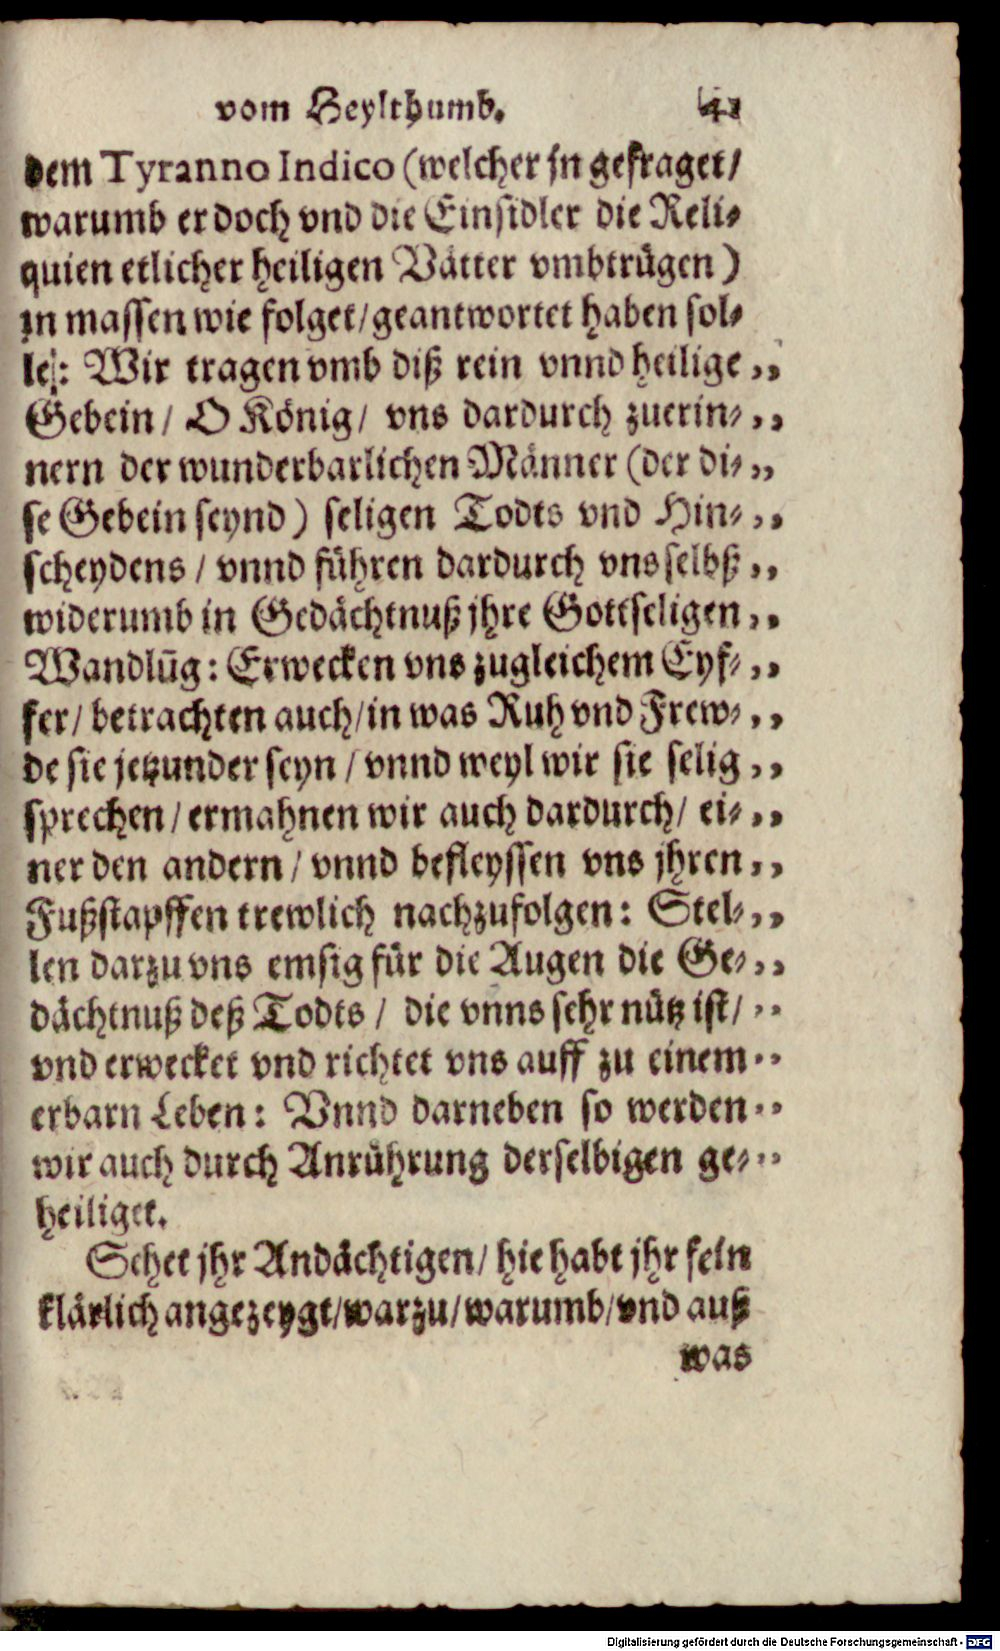 vom Heylthumb. 41
dem Tyranno Indico (welcher jn gefraget/
warumb er doch vnd die Einsidler die Reli-
quien etlicher heiligen Vätter vmbtrügen)
in massen wie folget/geantwortet haben sol-
le: Wir tragen vmb diß rein vnnd heilige ,,
Gebein/ O König/ vns dardurch zuerin- ,,
nern der wunderbarlichen Männer (der di- ,,
se Gebein seynd) seligen Todts vnd Hin- ,,
scheydens / vnnd führen dardurch vns selbß ,,
widerumb in Gedächtnuß jhre Gottseligen ,,
Wandlūg: Erwecken vns zugleichem Eyf- ,,
fer/ betrachten auch/in was Ruh vnd Frew- ,,
de sie jetzunder seyn / vnnd weyl wir sie selig ,,
sprechen / ermahnen wir auch dardurch/ ei- ,,
ner den andern / vnnd befleyssen vns jhren ,,
Fußstapffen trewlich nachzufolgen: Stel- ,,
len darzu vns emsig für die Augen die Ge- ,,
dächtnuß deß Todts / die vnns sehr nütz ist/ ,,
vnd erwecket vnd richtet vns auff zu einem ,,
erbarn Leben: Vnnd darneben so werden ,,
wir auch durch Anrührung derselbigen ge- ,,
heiliget.
Sehet jhr Andächtigen/ hie habt jhr fein
klärlich angezeygt/warzu/warumb/vnd auß
was
Digitalisierung gefördert durch die Deutsche Forschungsgemeinschaft - DFG